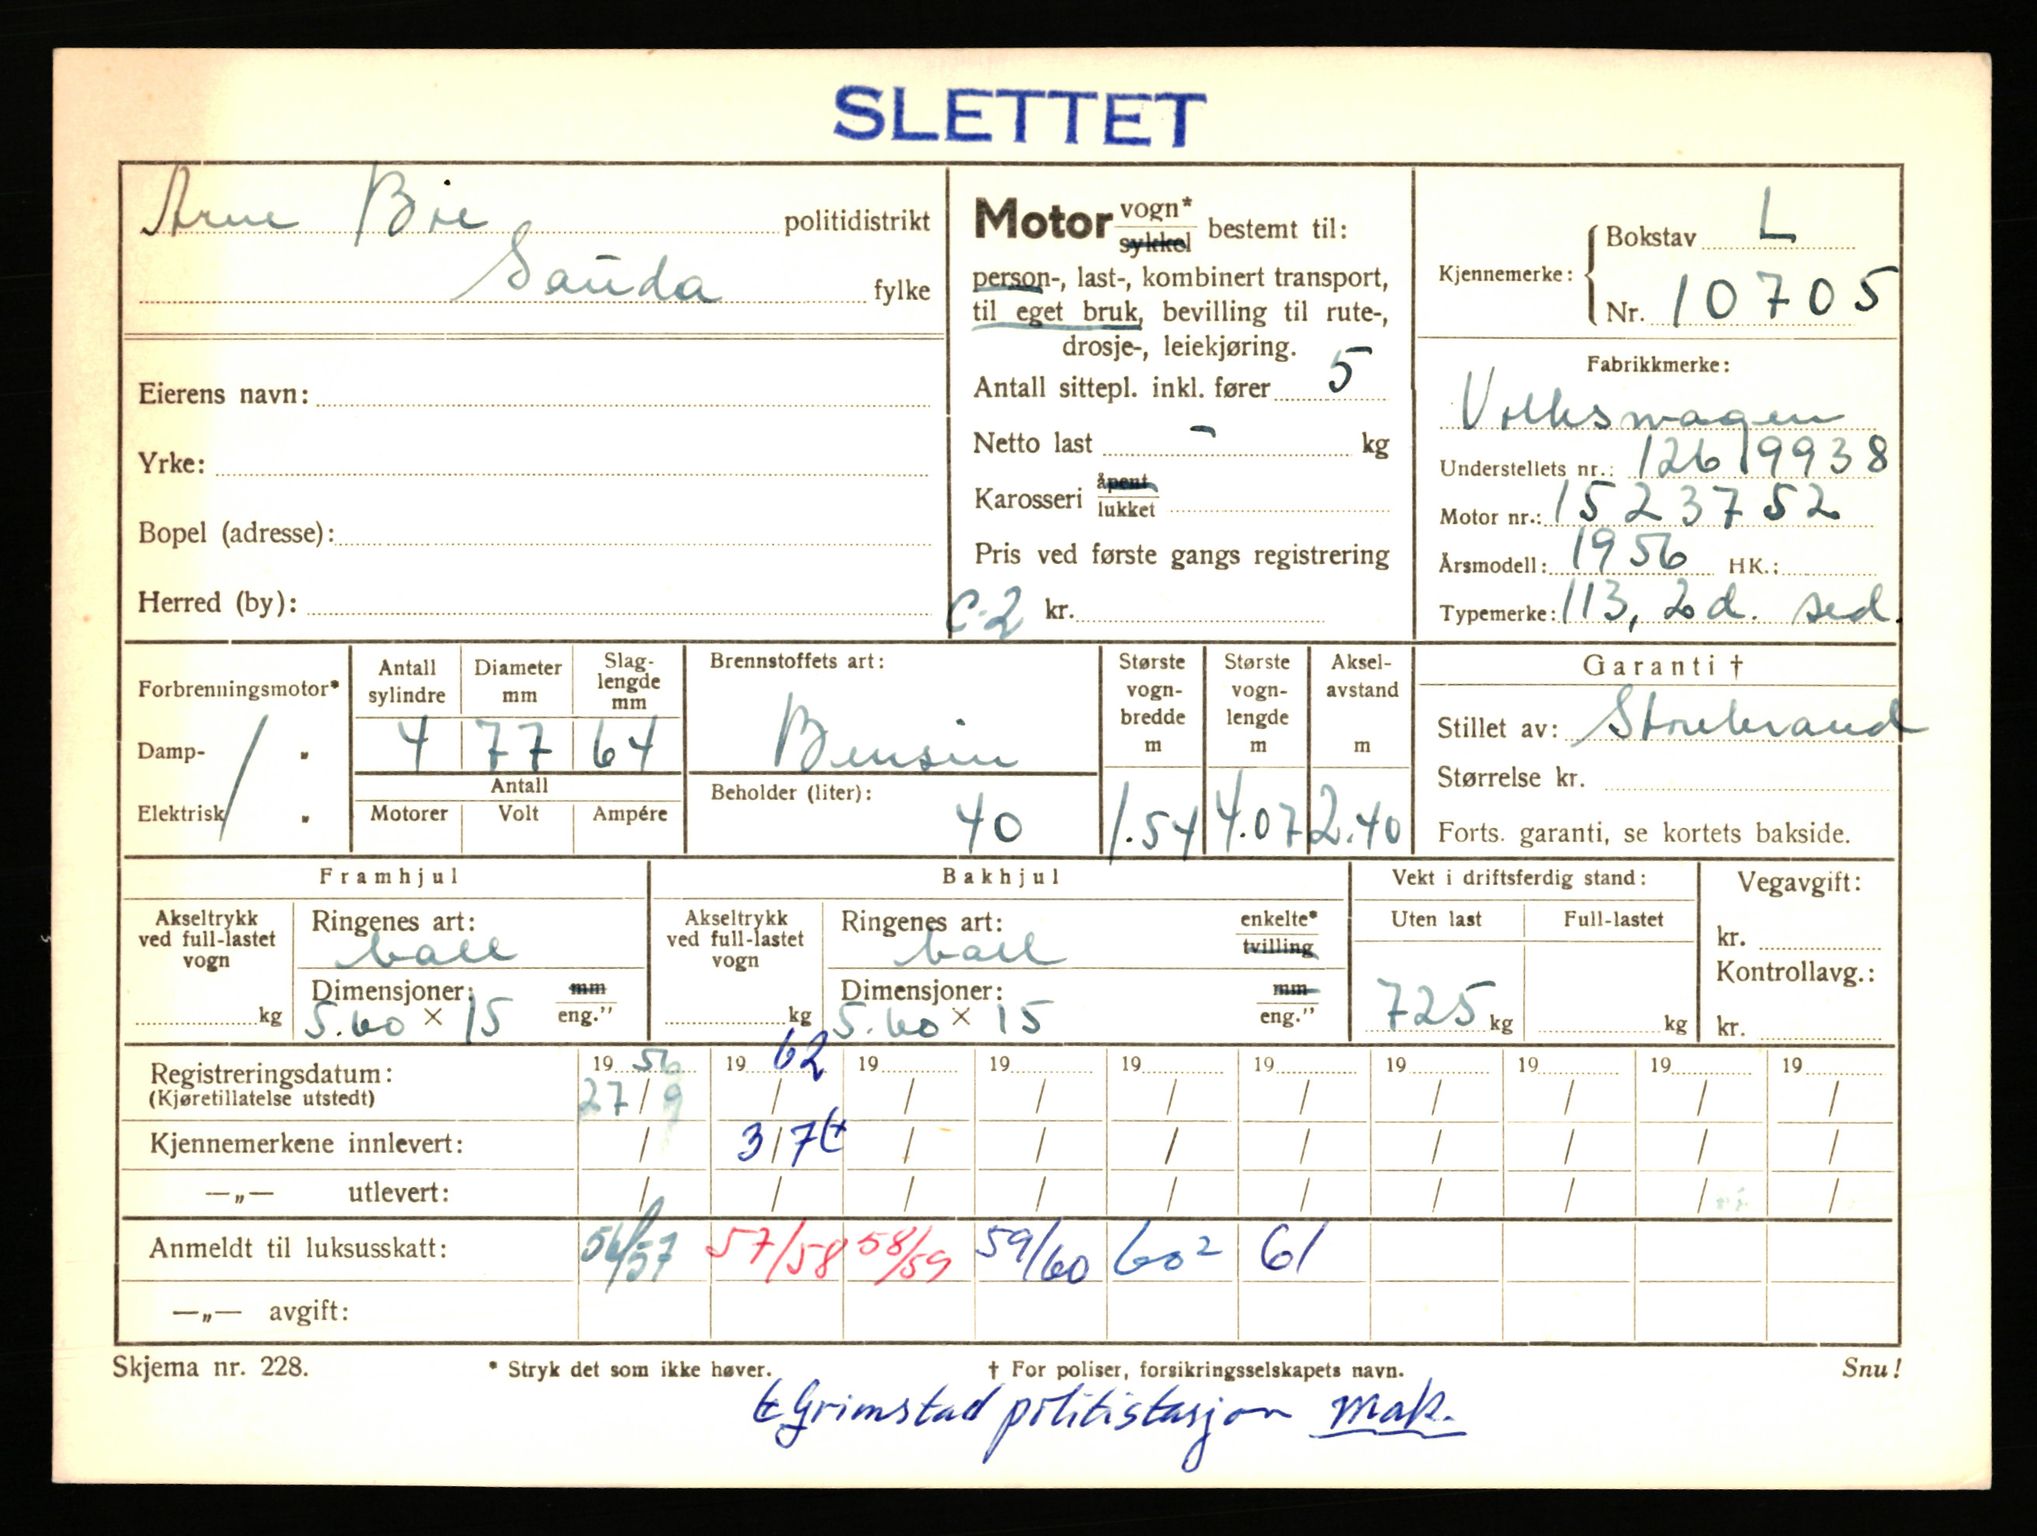 SLETTET
Arne Bøe politidistrikt
Sauda fylke
Eierens navn:
Yrke:
Bopel (adresse):
Herred (by):
Motor vogn* sykkel bestemt til:
person-, last-, kombinert transport,
til eget bruk, bevilling til rute-,
drosje-, leiekjøring.
Antall sittepl. inkl. fører 5
Netto last - kg
Karosseri åpent lukket
Pris ved første gangs registrering
C-2 kr.
Kjennemerke: Bokstav L
Nr. 10705
Fabrikkmerke:
Volkswagen
Understellets nr.: 12619938
Motor nr.: 1523752
Årsmodell: 1956 HK.:
Typemerke: 113, 2d. sed.
Forbrenningsmotor*
Damp- "
Elektrisk "
Antall sylindre Diameter mm Slag-lengde mm
4 77 64
Antall
Motorer Volt Ampére
Brennstoffets art:
Bensin
Beholder (liter):
40
Største vogn-bredde m Største vogn-lengde m Aksel-avstand m
1.54 4.07 2.40
Garanti †
Stillet av: Storebrand
Størrelse kr.
Forts. garanti, se kortets bakside.
Framhjul
Akseltrykk ved full-lastet vogn
kg
Ringenes art:
ball
Dimensjoner: mm
5.60 × 15 eng."
Bakhjul
Akseltrykk ved full-lastet vogn
kg
Ringenes art: enkelte*
ball tvilling
Dimensjoner: mm
5.60 × 15 eng."
Vekt i driftsferdig stand:
Uten last Full-lastet
725 kg kg
Vegavgift:
kr.
Kontrollavg.:
kr.
Registreringsdatum: 19 56 19 62 19 19 19 19 19 19 19 19
(Kjøretillatelse utstedt) 27/9 / / / / / / / / /
Kjennemerkene innlevert: / 3/7 / / / / / / / /
—„— utlevert: / / / / / / / / / /
Anmeldt til luksusskatt: 56/57 57/58 58/59 59/60 60² 61
—„— avgift:
Skjema nr. 228. * Stryk det som ikke høver. † For poliser, forsikringsselskapets navn. Snu!
Grimstad politistasjon mak.